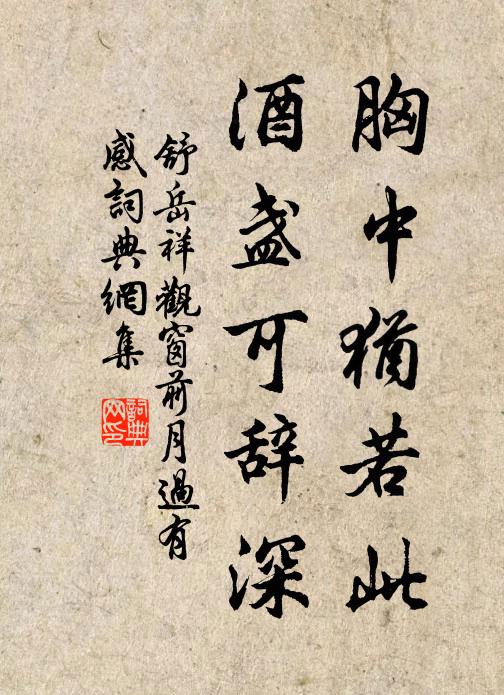 胸中犹若此
酒盏可辞深
舒岳祥觀窗前月過有
感詞典網集
詞典网印